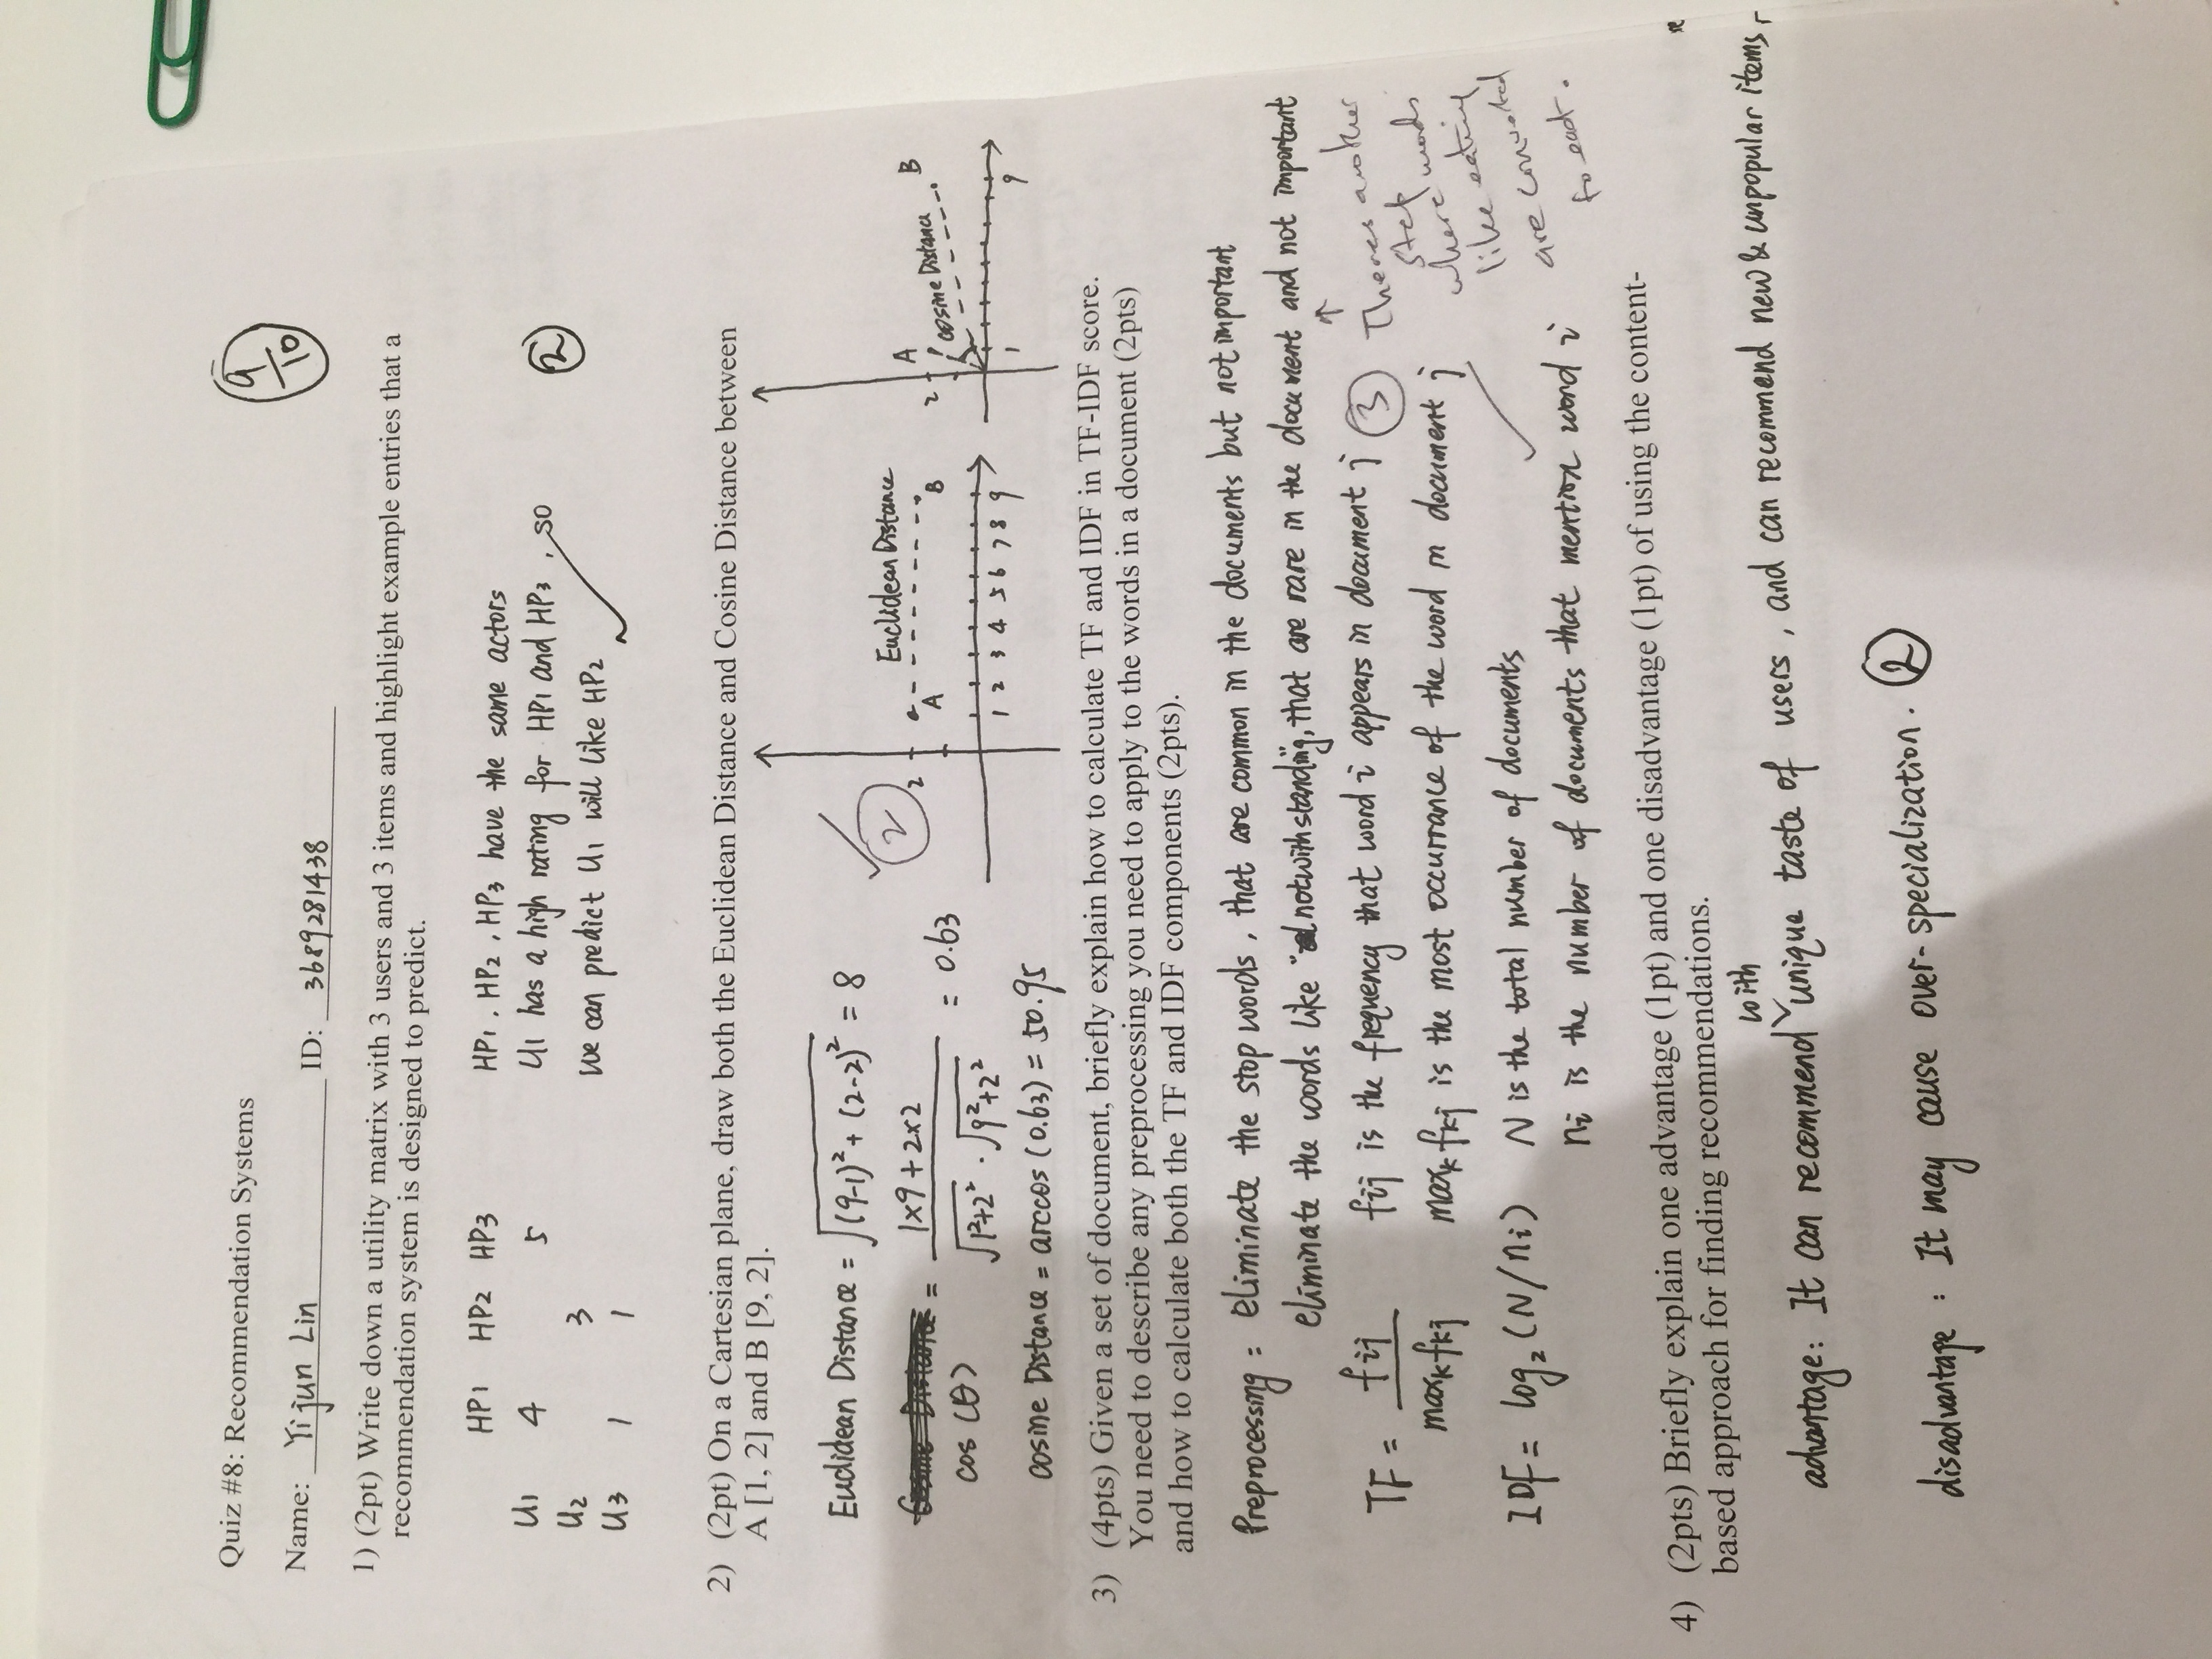 Quiz #8: Recommendation Systems
9/10
Name: Yijun Lin ID: 3689281438
1) (2pt) Write down a utility matrix with 3 users and 3 items and highlight example entries that a
recommendation system is designed to predict.
HP1 HP2 HP3
U1 4 5
U2 3
U3 1 1
HP1, HP2, HP3 have the same actors
U1 has a high rating for HP1 and HP3, so
we can predict U1 will like HP2
2
2) (2pt) On a Cartesian plane, draw both the Euclidean Distance and Cosine Distance between
A [1, 2] and B [9, 2].
Euclidean Distance = √((9-1)² + (2-2)²) = 8
cos(θ) = (1×9 + 2×2) / (√(1²+2²) · √(9²+2²)) = 0.63
cosine Distance = arccos (0.63) = 50.95
2
Euclidean Distance
2
A B
1 2 3 4 5 6 7 8 9
A B
2 cosine Distance
1 9
3) (4pts) Given a set of document, briefly explain how to calculate TF and IDF in TF-IDF score.
You need to describe any preprocessing you need to apply to the words in a document (2pts)
and how to calculate both the TF and IDF components (2pts).
Preprocessing: eliminate the stop words, that are common in the documents but not important
eliminate the words like "notwithstanding", that are rare in the document and not important
TF = fij / maxk fkj
fij is the frequency that word i appears in document j
maxk fkj is the most occurrance of the word in document j
3
IDF = log₂ (N/ni) N is the total number of documents
ni is the number of documents that mention word i
Theres another
step
where words
like eating
are converted
to eat.
4) (2pts) Briefly explain one advantage (1pt) and one disadvantage (1pt) of using the content-
based approach for finding recommendations.
advantage: It can recommend with unique taste of users, and can recommend new & unpopular items,
disadvantage: It may cause over-specialization. 2